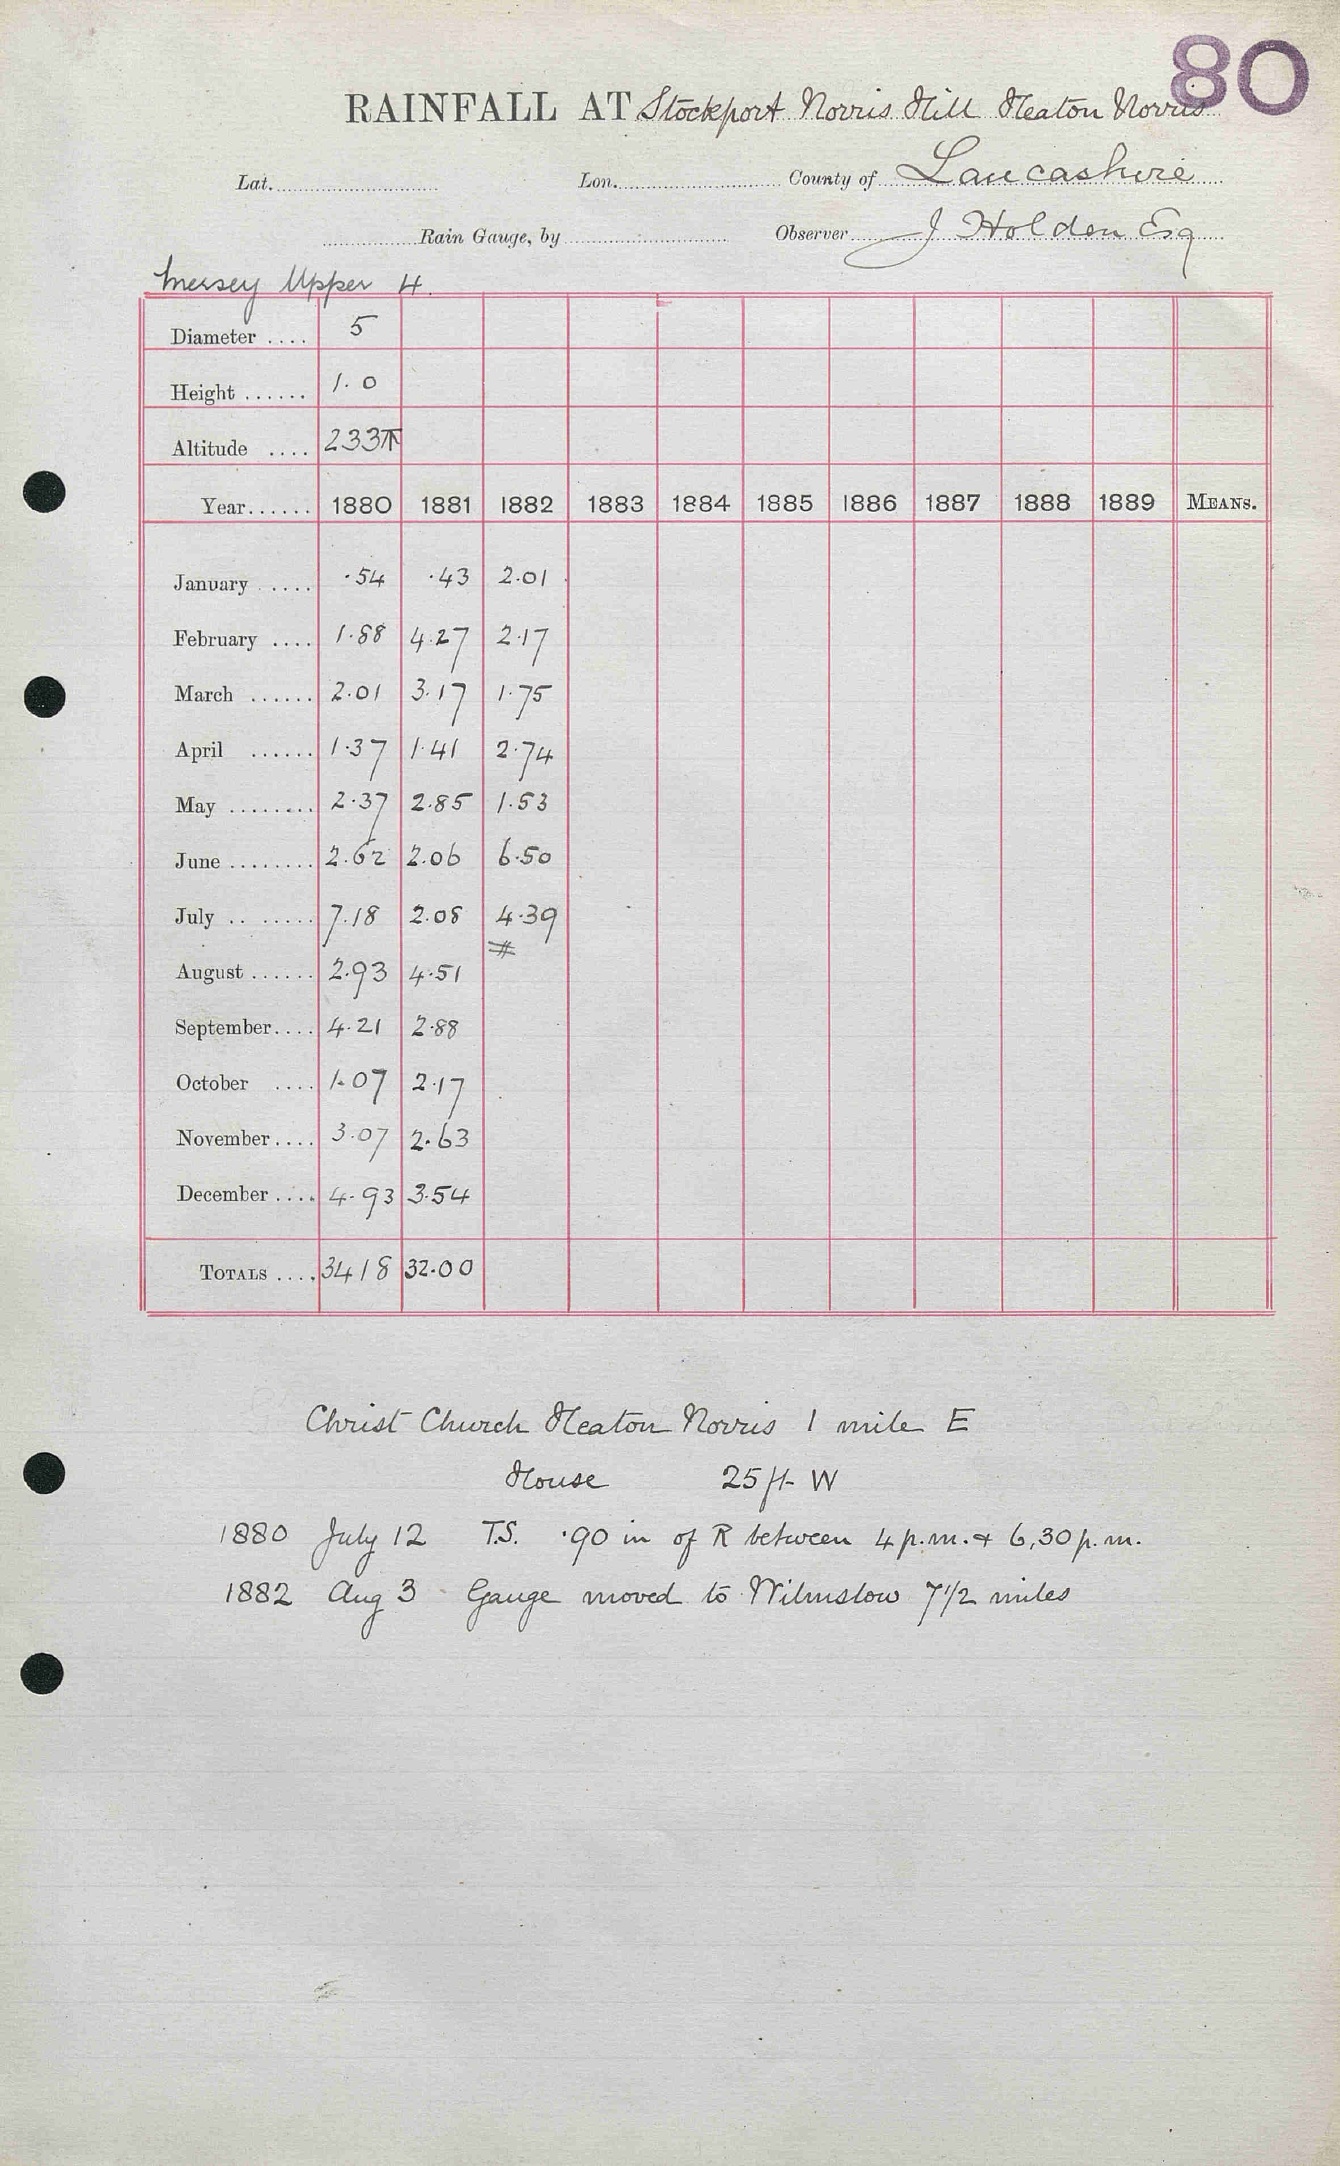 80
RAINFALL AT Stockport Norris Hill Heaton Norris
Lat. Lon. County of Lancashire
Rain Gauge, by Observer J Holden Esq
Mersey Upper 4.
Diameter .... 5
Height ...... 1.0
Altitude .... 233
Year...... 1880 1881 1882 1883 1884 1885 1886 1887 1888 1889 MEANS.
January ..... .54 .43 2.01
February .... 1.88 4.27 2.17
March ...... 2.01 3.17 1.75
April ...... 1.37 1.41 2.74
May ........ 2.37 2.85 1.53
June ........ 2.62 2.06 6.50
July .. ...... 7.18 2.08 4.39
#
August ...... 2.93 4.51
September.... 4.21 2.88
October .... 1.07 2.17
November.... 3.07 2.63
December .... 4.93 3.54
TOTALS .... 34 18 32.00
Christ Church Heaton Norris 1 mile E
House 25 ft W
1880 July 12 T.S. .90 in of R between 4 p.m. & 6,30 p.m.
1882 Aug 3 Gauge moved to Wilmslow 7 1/2 miles